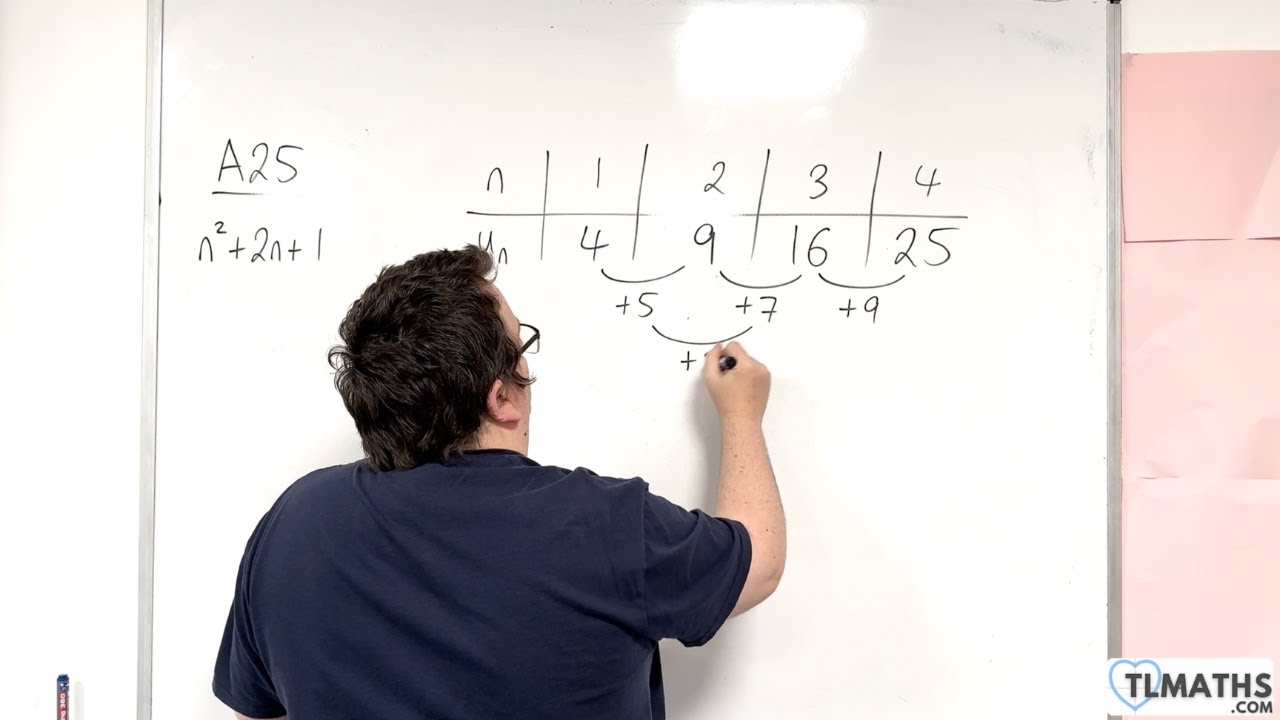 A25
n 1 2 3 4
n²+2n+1 un 4 9 16 25
+5 +7 +9
+
TLMATHS
.COM